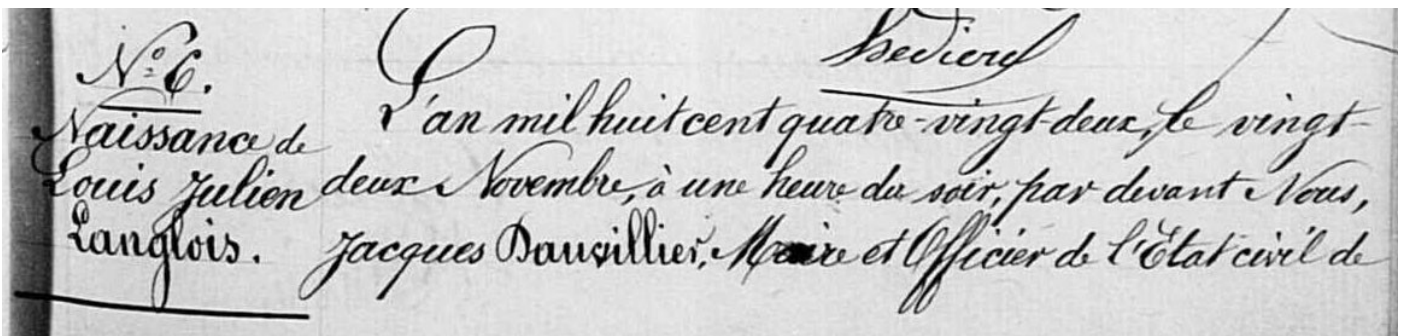 Nº 6.
Naissance de
Louis Julien
Langlois.
L'an mil huit cent quatre-vingt-deux, le vingt-
deux Novembre, à une heure du soir, par devant Nous,
Jacques Dauvillier, Maire et Officier de l'Etat civil de